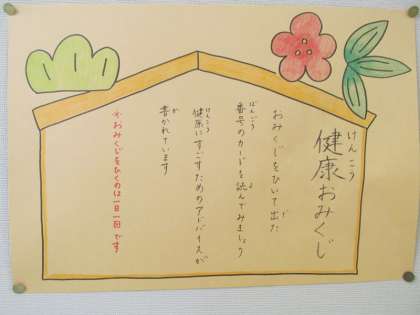 健康おみくじ
おみくじをひいて出た
番号のカードを読んでみましょう
健康にすごすためのアドバイスが
書かれています
※おみくじをひくのは一日一回です